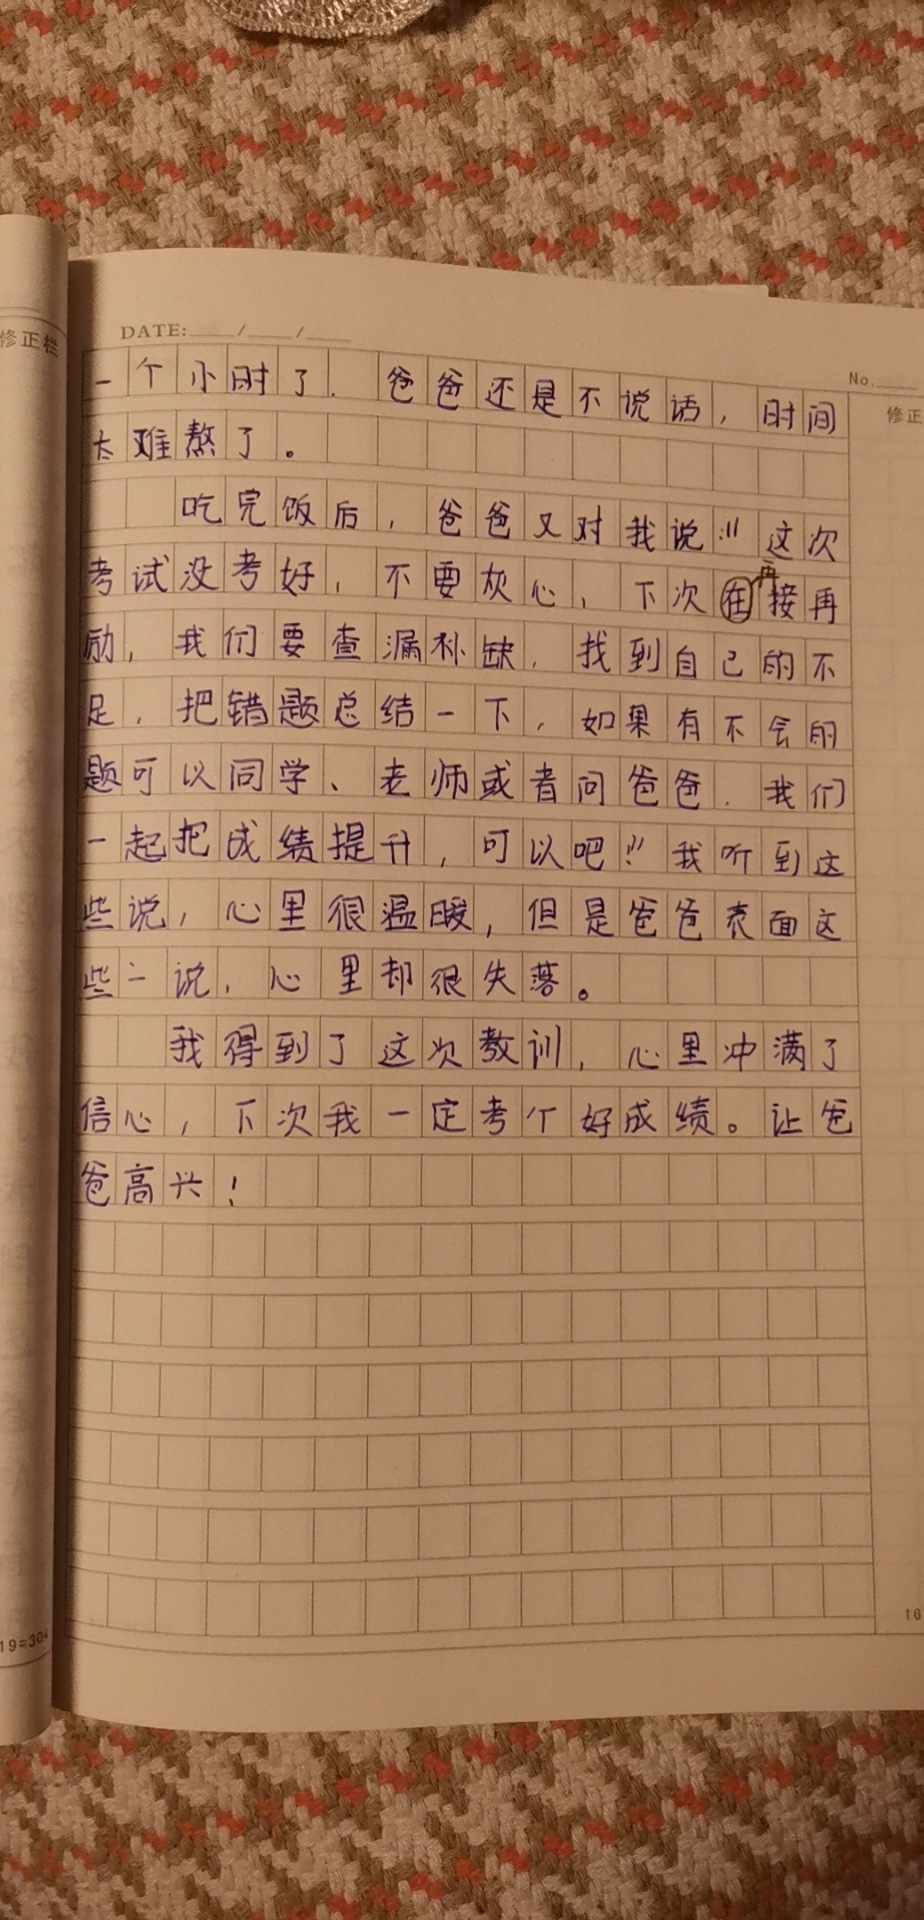 修正栏
DATE: / /
No.
修正
一个小时了．爸爸还是不说话，时间
太难熬了。
吃完饭后，爸爸又对我说：“这次
考试没考好，不要灰心，下次在接再
再
励，我们要查漏补缺，找到自己的不
足，把错题总结一下，如果有不会的
题可以同学、老师或者问爸爸．我们
一起把成绩提升，可以吧！”我听到这
些说，心里很温暖，但是爸爸表面这
些一说，心里却很失落。
我得到了这次教训，心里冲满了
信心，下次我一定考个好成绩。让爸
爸高兴！
16
19=304